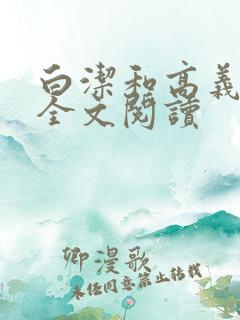 白潔和高義
全文閱讀
卿漫歌
未经同意禁止转载